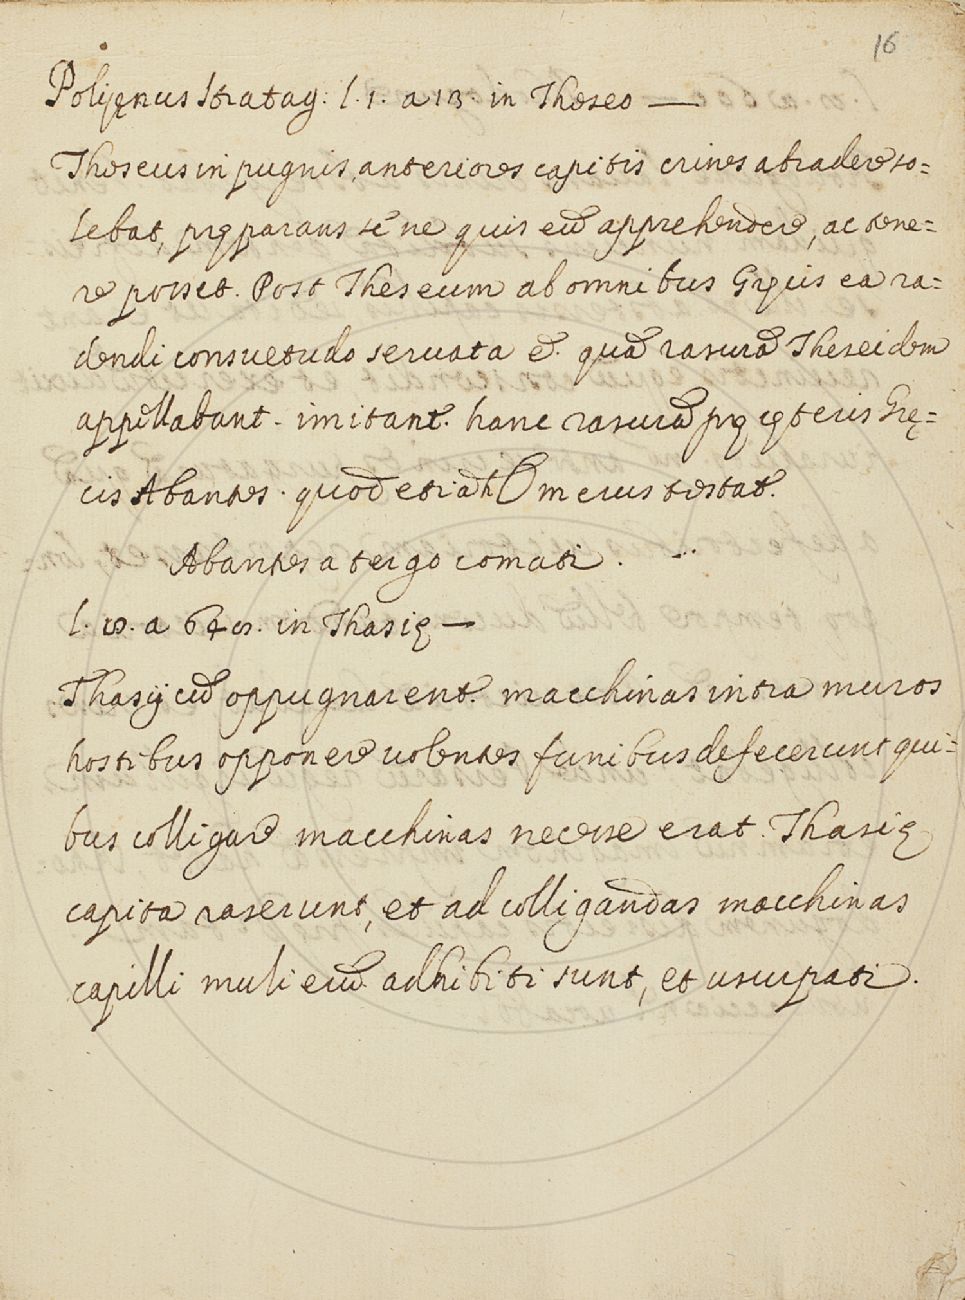 16
Polyęnus Stratag: l. 1. a 13. in Theseo —
Theseus in pugnis, anteriores capitis crines abradere so=
lebat, pręparans sē ne quis eū apprehendere, ac tene=
re posset. Post Theseum ab omnibus Gręcis ea ra=
dendi consuetudo servata ē. quā rasurā Theseidem
appellabant. imitant. hanc rasurā prę cęteris Grę=
cis Abantes. quod etiā hOmerus testat.
Abantes a tergo comati.
in Thasię —
Thasij cū oppugnarent. macchinas intra muros
hostibus opponere volentes funibus defecerunt qui=
bus colligare macchinas necesse erat. Thasię
capita raserunt, et ad colligandas macchinas
capilli muli eū adhibiti sunt, et usurpati.